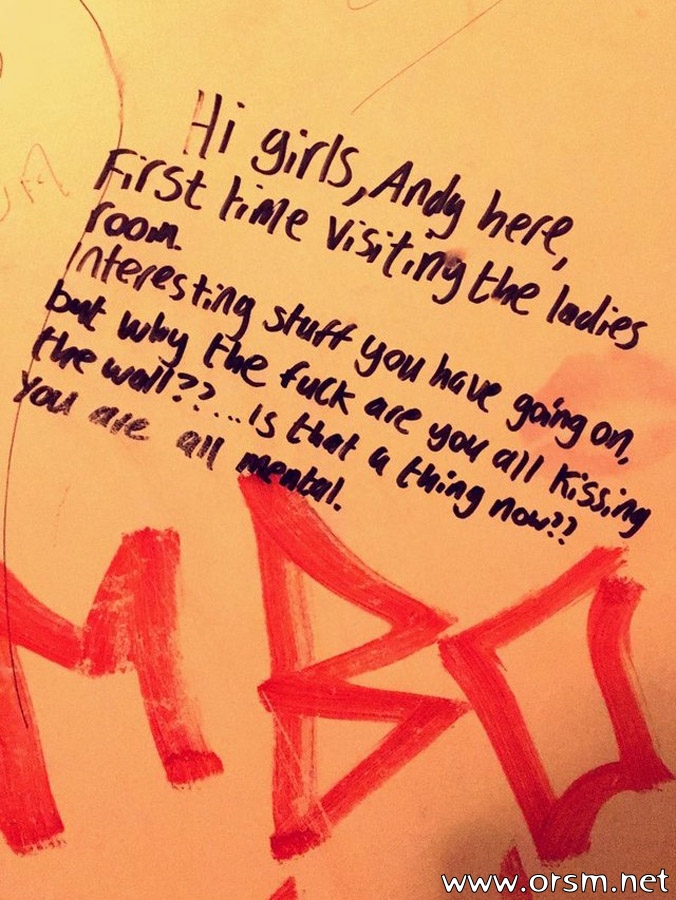 Hi girls, Andy here,
First time visiting the ladies
room.
Interesting stuff you have going on,
but why the fuck are you all kissing
the wall??...Is that a thing now??
You are all mental.
MBO
www.orsm.net